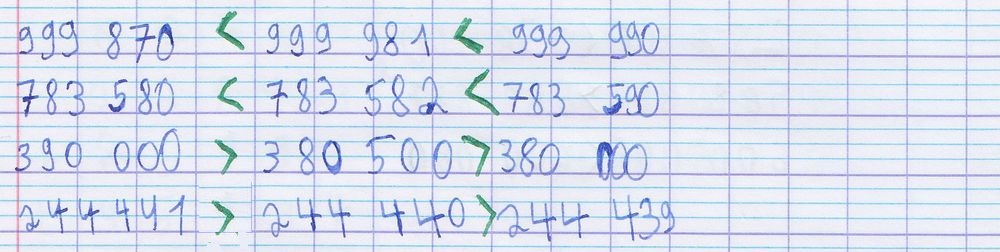 999 870 < 999 981 < 999 990
783 580 < 783 582 < 783 590
390 000 > 380 500 > 380 000
244 441 > 244 440 > 244 439